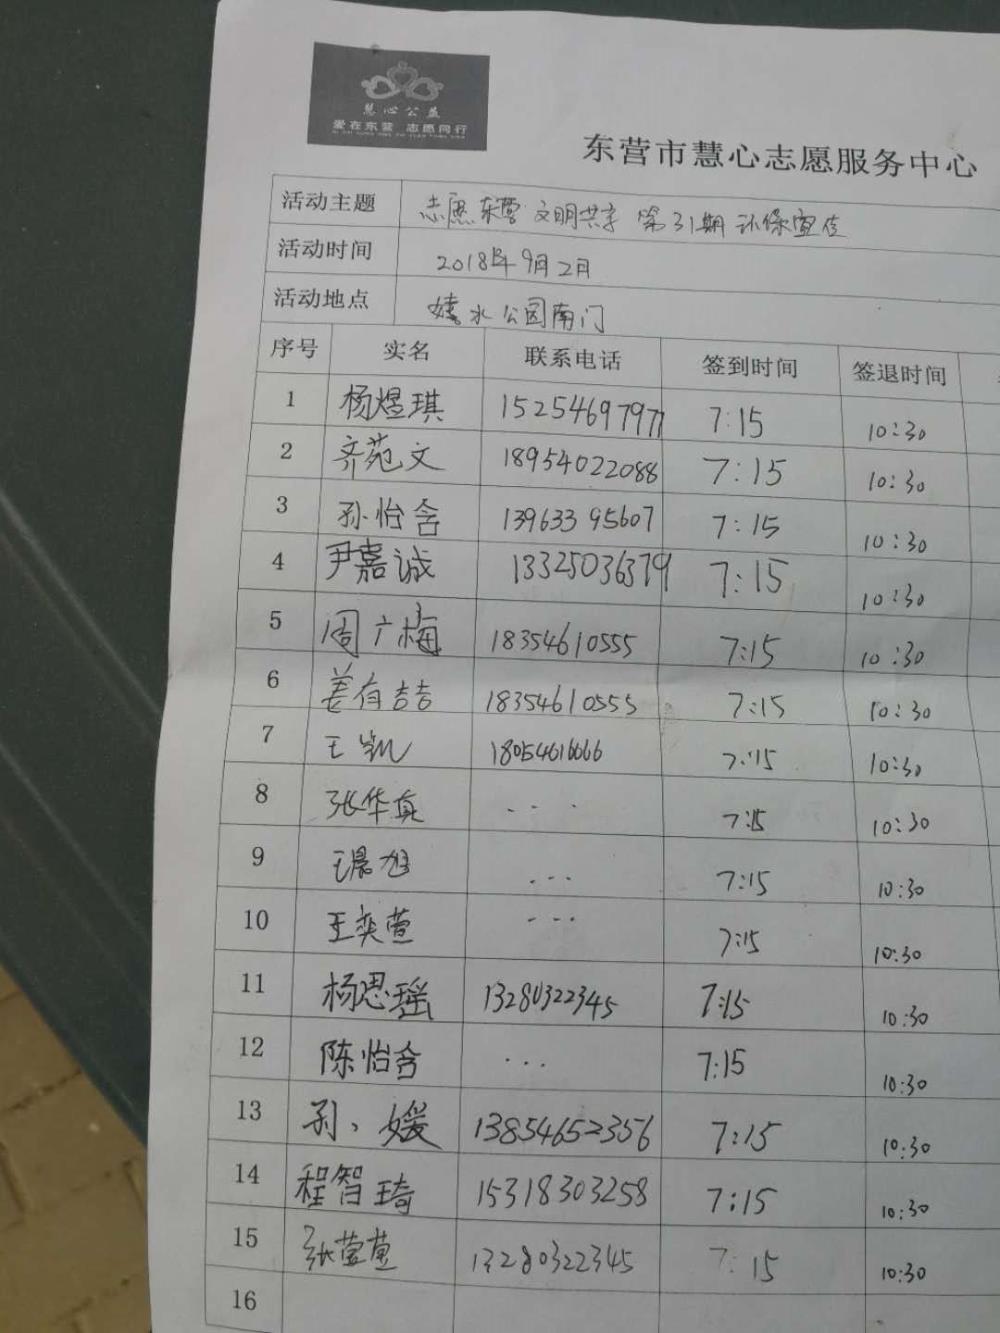 慧心公益
爱在东营 志愿同行
东营市慧心志愿服务中心
活动主题 志愿东营 文明共享 第31期 环保宣传
活动时间 2018年9月2月
活动地点 嬉水公园南门
序号 实名 联系电话 签到时间 签退时间
1 杨煜琪 15254697977 7:15 10:30
2 齐苑文 18954022088 7:15 10:30
3 孙怡含 13963395607 7:15 10:30
4 尹嘉诚 13325036379 7:15 10:30
5 周广梅 18354610555 7:15 10:30
6 姜有喆 18354610555 7:15 10:30
7 王凯 18054616666 7:15 10:30
8 张华真 ... 7:15 10:30
9 王晨旭 ... 7:15 10:30
10 王奕萱 --- 7:15 10:30
11 杨思瑶 13280322345 7:15 10:30
12 陈怡含 ... 7:15 10:30
13 孙、媛 13854652356 7:15 10:30
14 程智琦 15318303258 7:15 10:30
15 张萱萱 13280322345 7:15 10:30
16